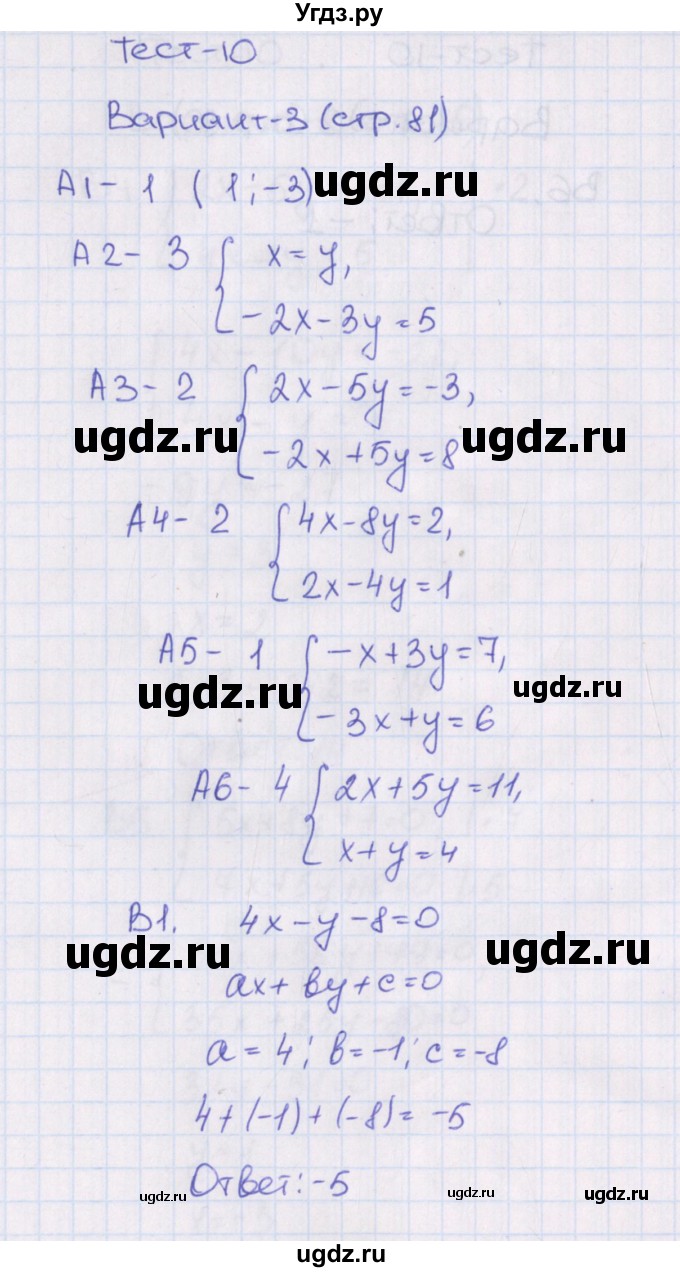 Угдз.ру
Тест-10
Вариант-3 (стр.81)
А1- 1 (1;-3)
ugdz.ru
А2- 3 { x=y,
-2x-3y=5
А3- 2 { 2x-5y=-3,
ugdz.ru ugdz.ru
-2x+5y=8
А4- 2 { 4x-8y=2,
2x-4y=1
А5- 1 { -x+3y=7,
ugdz.ru ugdz.ru
-3x+y=6
А6- 4 { 2x+5y=11,
x+y=4
В1. 4x-y-8=0
ugdz.ru ugdz.ru
ax+by+c=0
a=4; b=-1; c=-8
4+(-1)+(-8)=-5
Ответ:-5
ugdz.ru ugdz.ru ugdz.ru
ugdz.ru